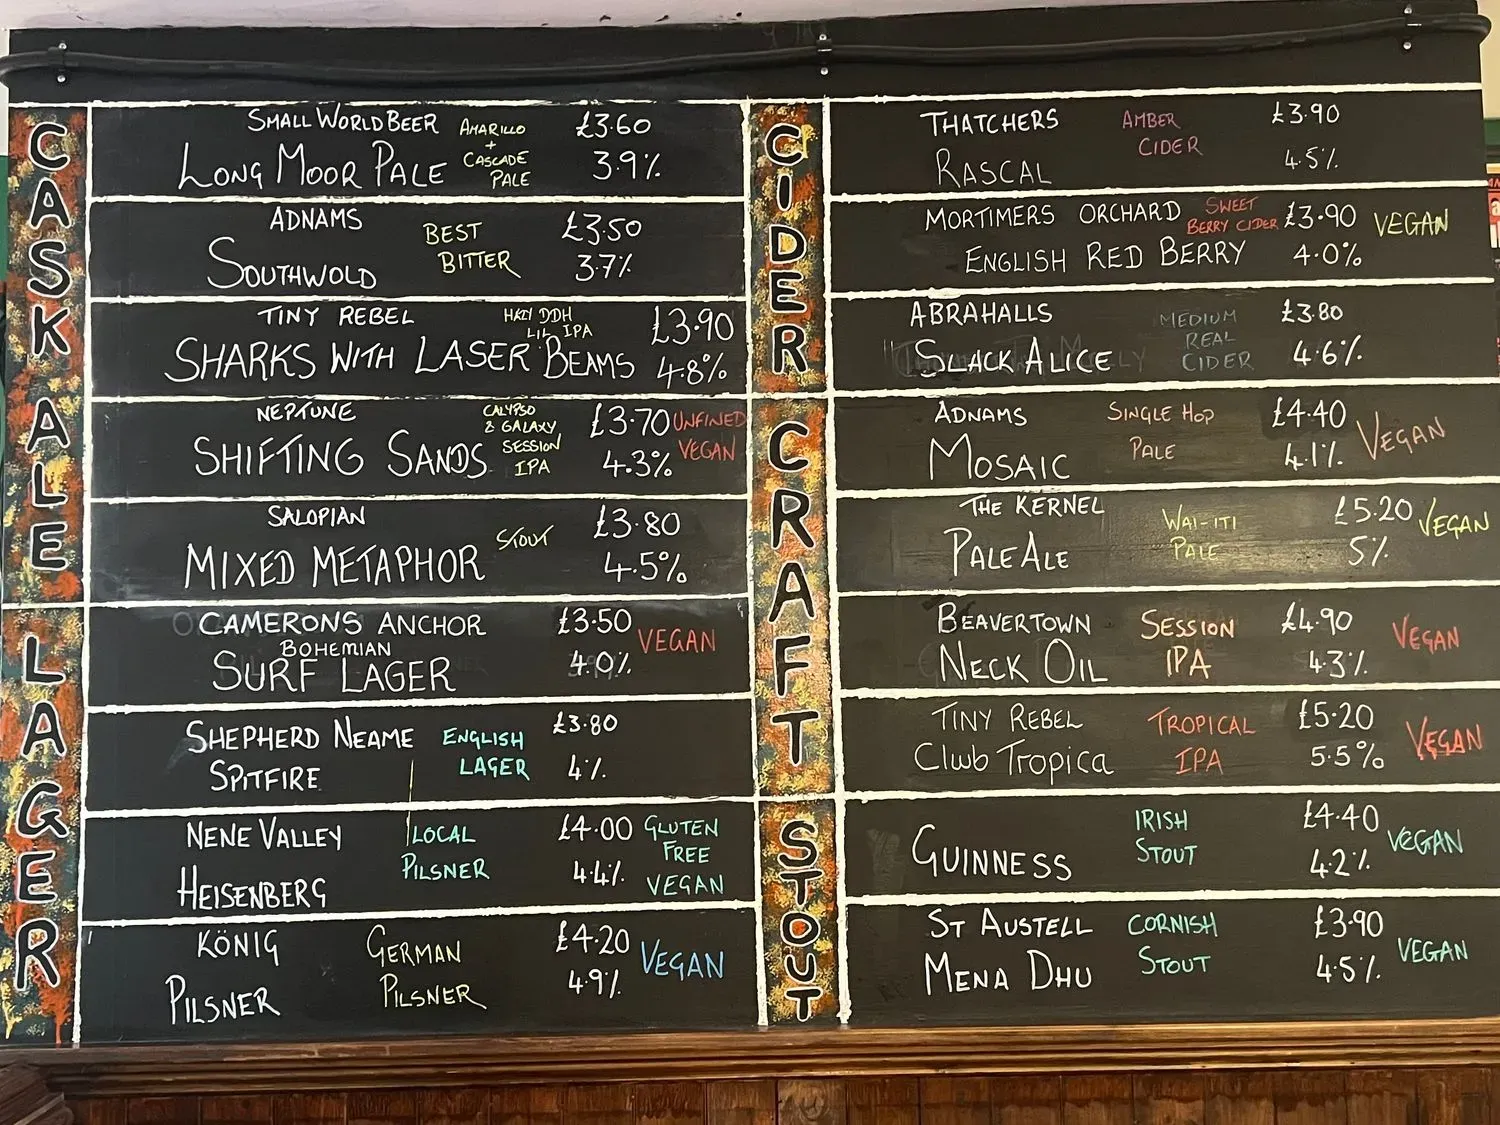 CASK ALE
SMALL WORLD BEER
LONG MOOR PALE
AMARILLO
+
CASCADE
PALE
£3.60
3.9%
ADNAMS
SOUTHWOLD
BEST
BITTER
£3.50
3.7%
TINY REBEL
SHARKS WITH LASER BEAMS
HAZY DDH
LIL IPA
£3.90
4.8%
NEPTUNE
SHIFTING SANDS
CALYPSO
& GALAXY
SESSION
IPA
£3.70
4.3%
UNFINED
VEGAN
SALOPIAN
MIXED METAPHOR
STOUT
£3.80
4.5%
LAGER
CAMERONS ANCHOR
BOHEMIAN
SURF LAGER
£3.50
4.0%
VEGAN
SHEPHERD NEAME
SPITFIRE
ENGLISH
LAGER
£3.80
4%
NENE VALLEY
HEISENBERG
LOCAL
PILSNER
£4.00
4.4%
GLUTEN
FREE
VEGAN
KÖNIG
PILSNER
GERMAN
PILSNER
£4.20
4.9%
VEGAN
CIDER
THATCHERS
RASCAL
AMBER
CIDER
£3.90
4.5%
MORTIMERS ORCHARD
ENGLISH RED BERRY
SWEET
BERRY CIDER
£3.90
4.0%
VEGAN
ABRAHALLS
SLACK ALICE
MEDIUM
REAL
CIDER
£3.80
4.6%
CRAFT
ADNAMS
MOSAIC
SINGLE HOP
PALE
£4.40
4.1%
VEGAN
THE KERNEL
PALE ALE
WAI-ITI
PALE
£5.20
5%
VEGAN
BEAVERTOWN
NECK OIL
SESSION
IPA
£4.90
4.3%
VEGAN
TINY REBEL
Clwb Tropica
TROPICAL
IPA
£5.20
5.5%
VEGAN
STOUT
GUINNESS
IRISH
STOUT
£4.40
4.2%
VEGAN
ST AUSTELL
MENA DHU
CORNISH
STOUT
£3.90
4.5%
VEGAN